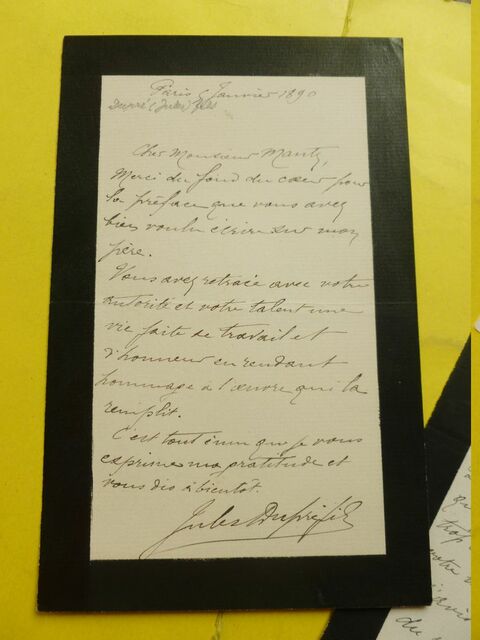 Paris 6 Janvier 1890
Dupré (Jules) fils
Cher Monsieur Mantz,
Merci du fond du cœur pour
la préface que vous avez
bien voulu écrire sur mon
père.
Vous avez retracé avec votre
autorité et votre talent une
vie faite de travail et
d'honneur en rendant
hommage à l'œuvre qui la
remplit.
C'est tout ému que je vous
exprime ma gratitude et
vous dis à bientôt.
Jules Dupré fils
trop
du